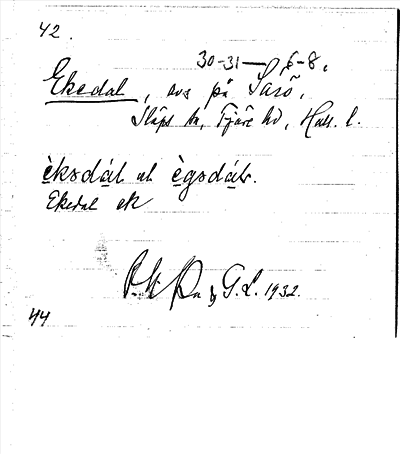 42.
30-31— 6-8.
Ekedal, avs på Särö,
Släps sn, Fjäre hd, Hall. l.
èksdál ell. ègsdálr.
Ekedal ek
G.L. 1932.
44